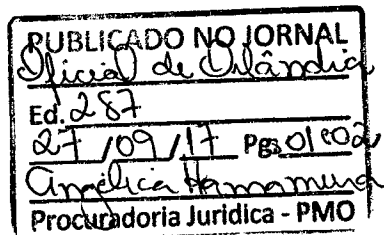 PUBLICADO NO JORNAL
Oficial de Orlândia
Ed. 287
27/09/17 Pgs 01 e 02
Angélica Hamamura
Procuradoria Juridica - PMO